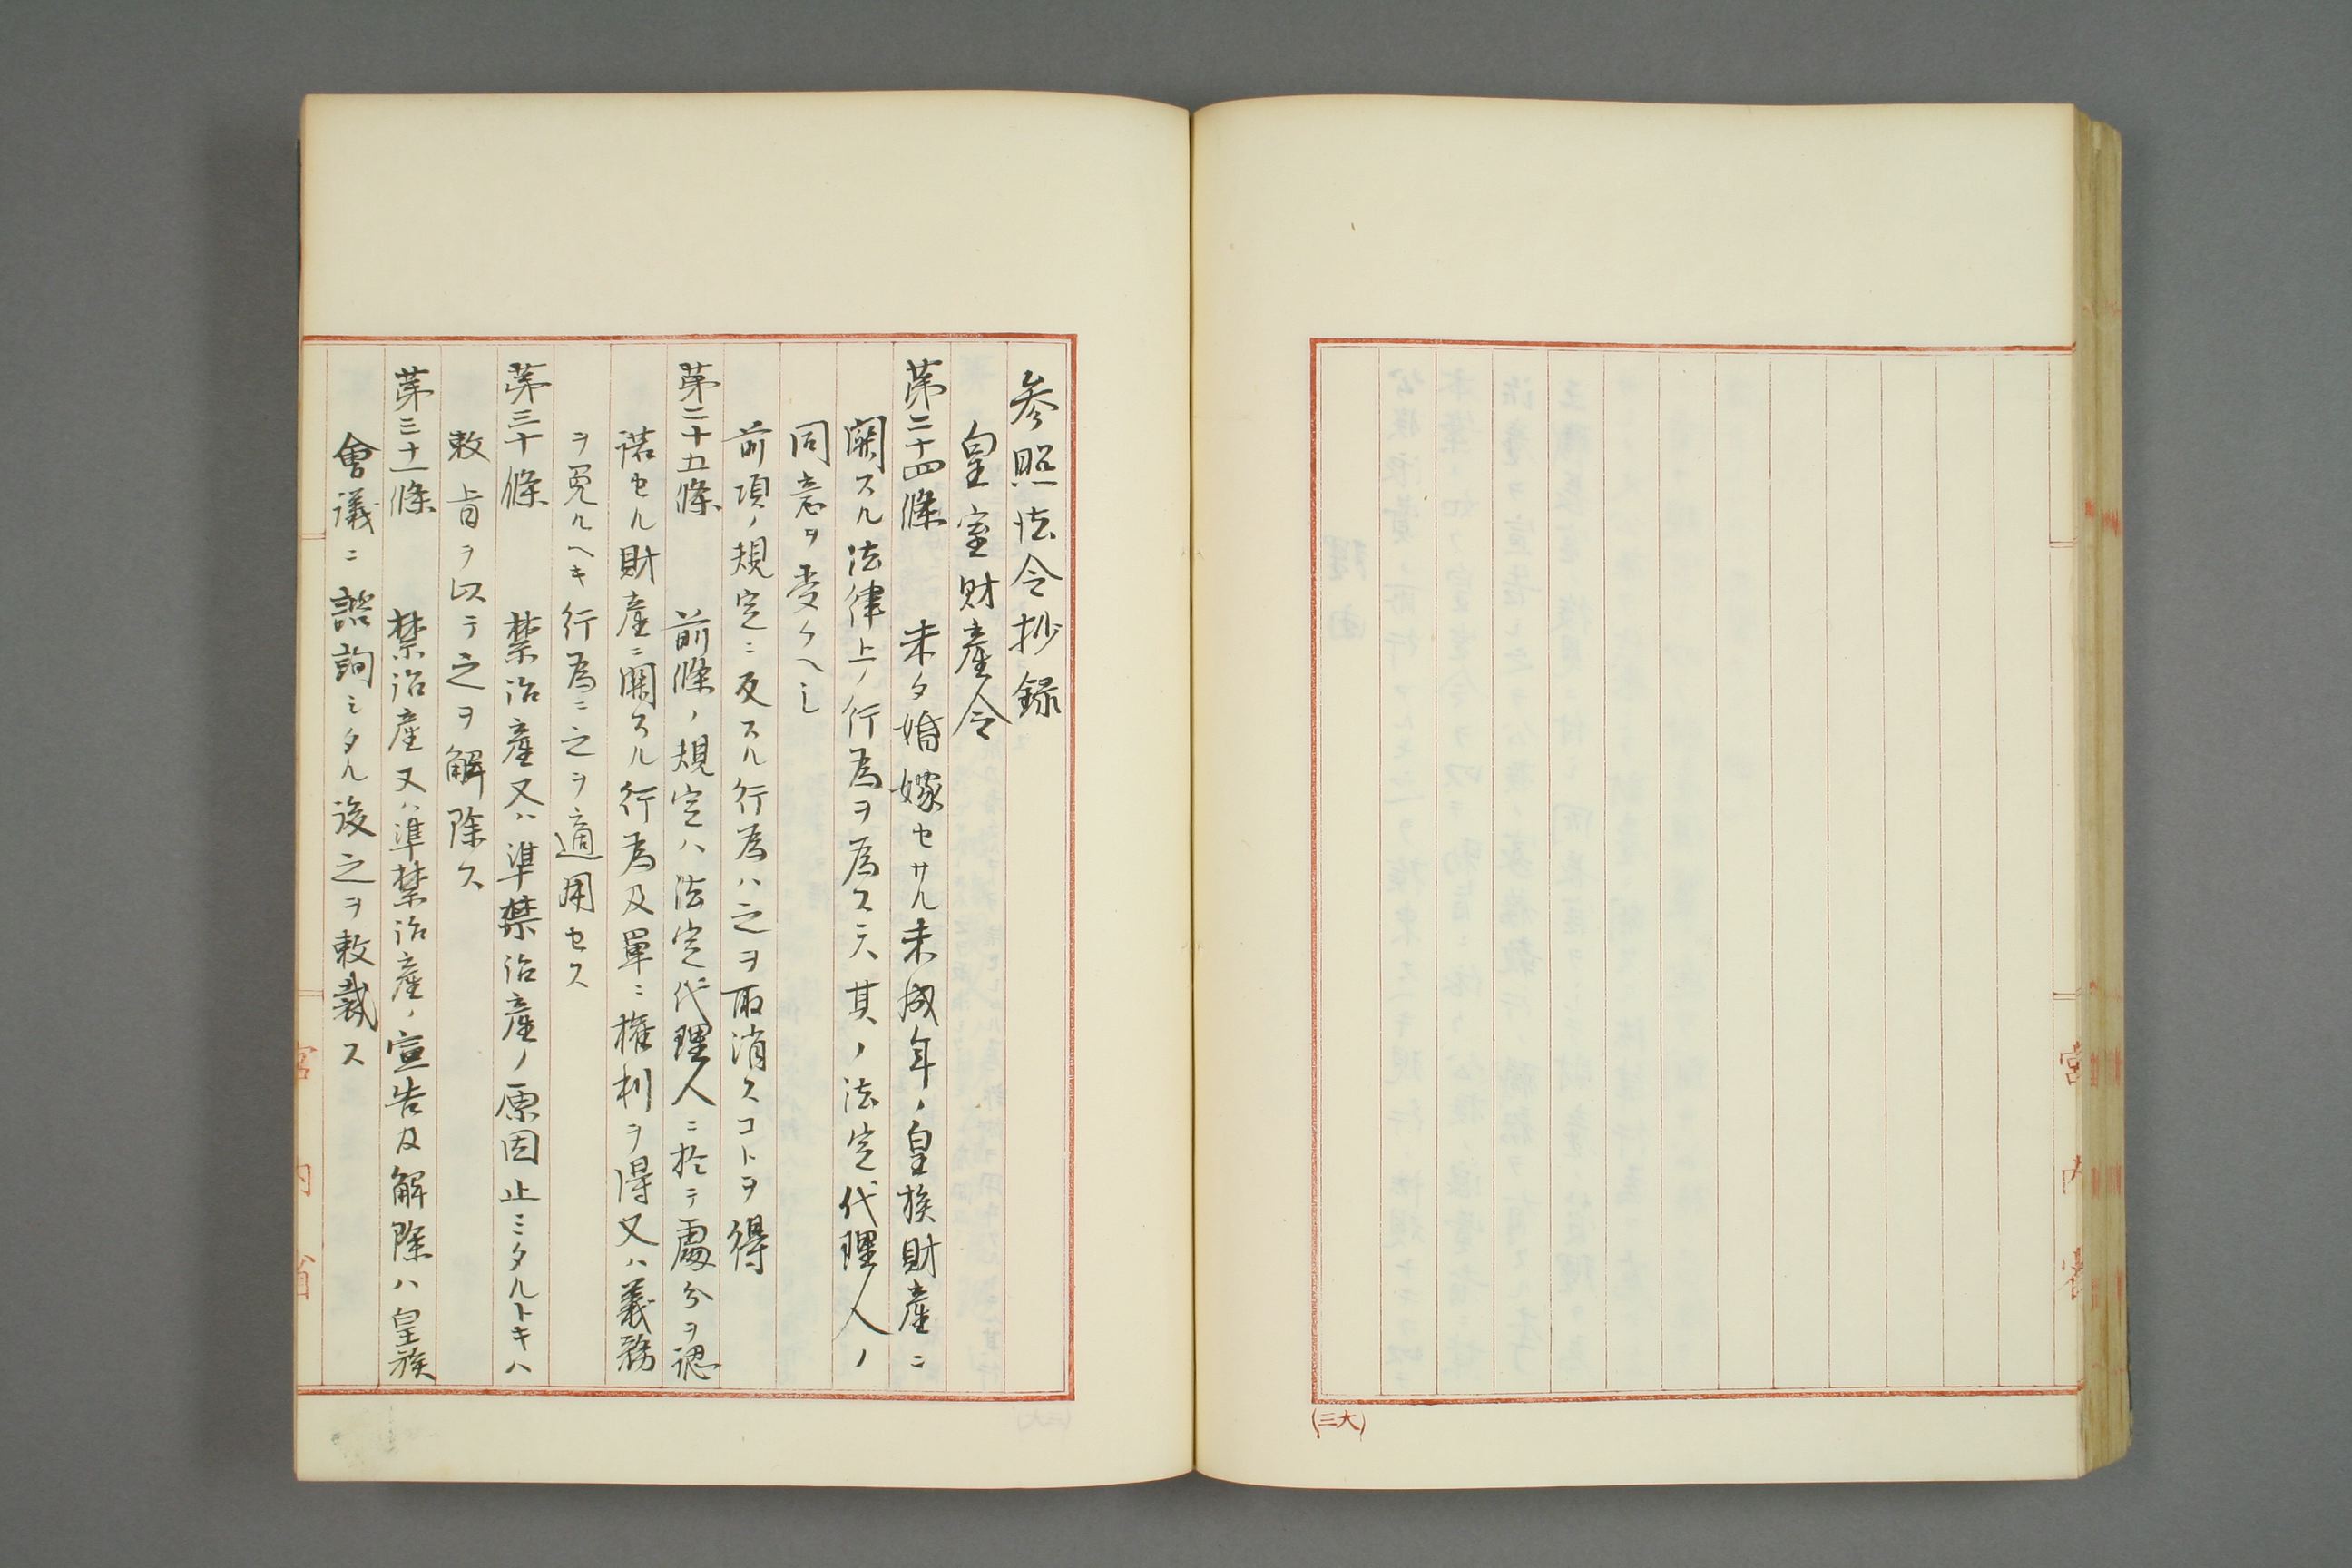 宮內省
(大三)
参照法令抄録
皇室財産令
第二十四條　未タ婚嫁セサル未成年ノ皇族財産ニ
関スル法律上ノ行為ヲ為スニハ其ノ法定代理人ノ
同意ヲ受クヘシ
前項ノ規定ニ反スル行為ハ之ヲ取消スコトヲ得
第二十五條　前條ノ規定ハ法定代理人ニ於テ處分ヲ認
諾セル財産ニ関スル行為及單ニ権利ヲ得又ハ義務
ヲ免ルヘキ行為ニ之ヲ適用セス
第三十條　禁治産又ハ準禁治産ノ原因止ミタルトキハ
敕旨ヲ以テ之ヲ解除ス
第三十一條　禁治産又ハ準禁治産ノ宣告及解除ハ皇族
會議ニ諮詢シタル後之ヲ敕裁ス
宮內省